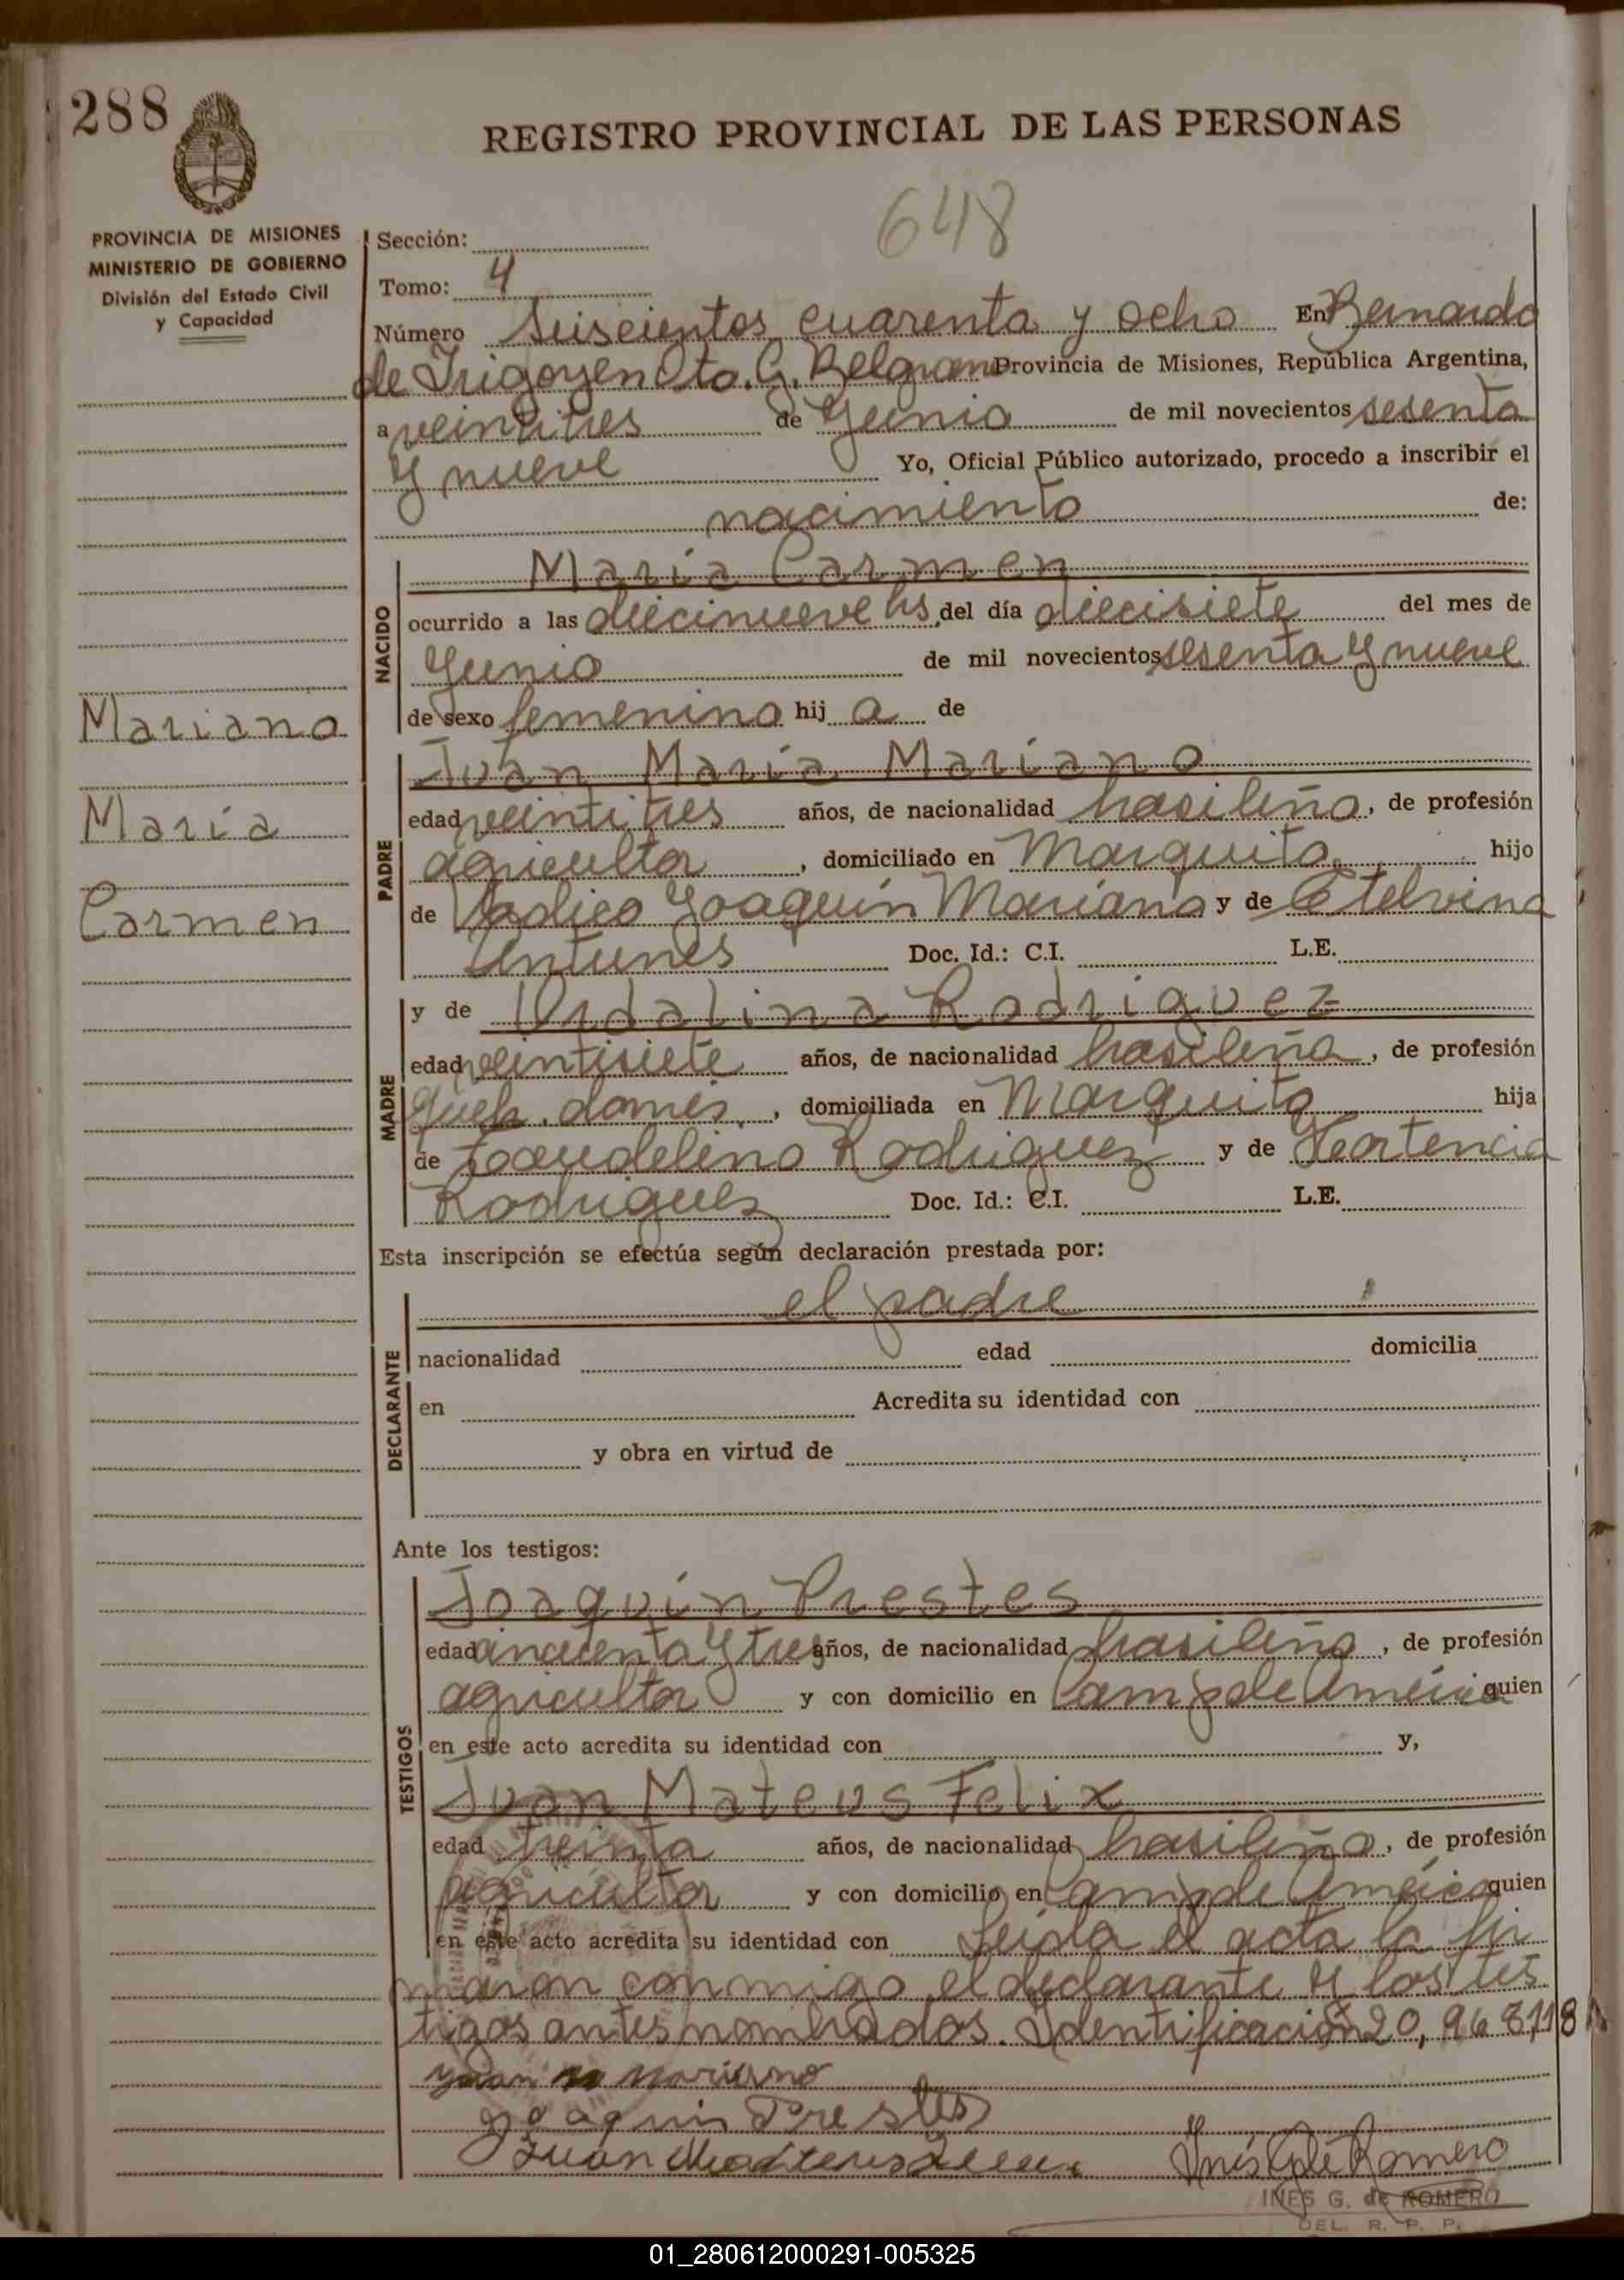 288
REGISTRO PROVINCIAL DE LAS PERSONAS
648
PROVINCIA DE MISIONES
MINISTERIO DE GOBIERNO
División del Estado Civil
y Capacidad
Sección:
Tomo: 4
Número Seiscientos cuarenta y ocho En Bernardo
de Irigoyen Dto. G. Belgrano Provincia de Misiones, República Argentina,
a veintitres de Junio de mil novecientos sesenta
y nueve Yo, Oficial Público autorizado, procedo a inscribir el
nacimiento de:
NACIDO
María Carmen
ocurrido a las diecinueve hs. del día diecisiete del mes de
Junio de mil novecientos sesenta y nueve
de sexo femenino hij a de
Mariano
María
Carmen
PADRE
Juan María Mariano
edad veintitres años, de nacionalidad brasileño, de profesión
agricultor, domiciliado en Marquito hijo
de Joaquín Mariano y de Etelvina
Antunes Doc. Id.: C.I. L.E.
MADRE
y de Ordalina Rodriguez
edad veintisiete años, de nacionalidad brasileña, de profesión
queh. domés., domiciliada en Marquito hija
de Rodriguez y de Hortencia
Rodriguez Doc. Id.: C.I. L.E.
Esta inscripción se efectúa según declaración prestada por:
DECLARANTE
el padre
nacionalidad edad domicilia
en Acredita su identidad con
y obra en virtud de
Ante los testigos:
TESTIGOS
Joaquín Prestes
edad cincuenta y tres años, de nacionalidad brasileño, de profesión
agricultor y con domicilio en Camp de América quien
en este acto acredita su identidad con y,
Juan Mateus Felix
edad treinta años, de nacionalidad brasileño, de profesión
agricultor y con domicilio en Camp de América quien
en este acto acredita su identidad con Leída el acta la fir
maron conmigo el declarante y los tes
tigos antes nombrados. Identificación 20,968,118
Juan M Mariano
Joaquin Prestes
Juan Mateus
Inés G de Romero
INES G. de ROMERO
DEL. R. P. P.
01_280612000291-005325